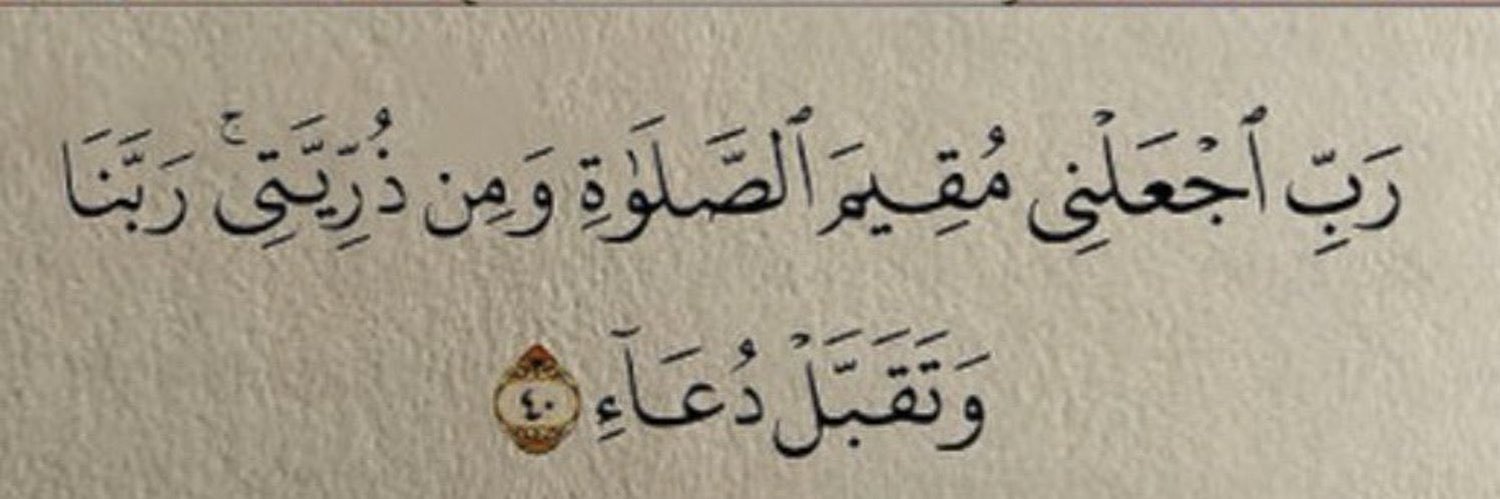 رَبِّ ٱجْعَلْنِى مُقِيمَ ٱلصَّلَوٰةِ وَمِن ذُرِّيَّتِى ۚ رَبَّنَا
وَتَقَبَّلْ دُعَآءِ ٤٠